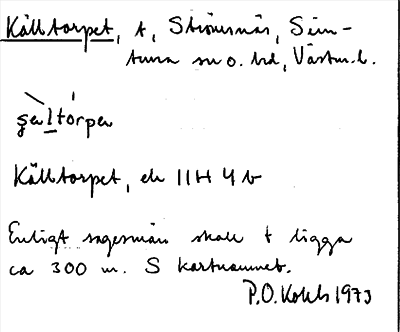 Källtorpet, t, Strömsnäs, Sim-
tuna sn o. hd, Västm. l.
şęltórpen
Källtorpet, ek 11H 4 b
Enligt sagesmän skall t ligga
ca 300 m. S kartnamnet.
P.O. 1973